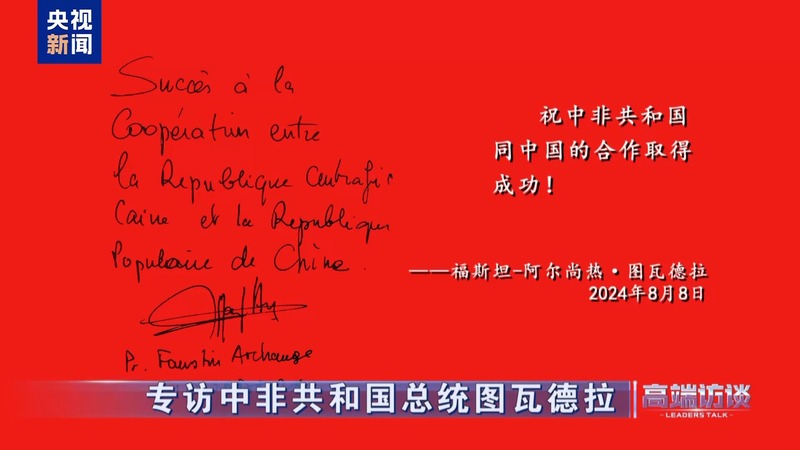 央视
新闻
Succès à la
Coopération entre
la Republique Centrafri
Caine et la Republique
Populaire de Chine.
Pr. Faustin Archange
祝中非共和国
同中国的合作取得
成功！
——福斯坦-阿尔尚热·图瓦德拉
2024年8月8日
专访中非共和国总统图瓦德拉
高端访谈
LEADERS TALK